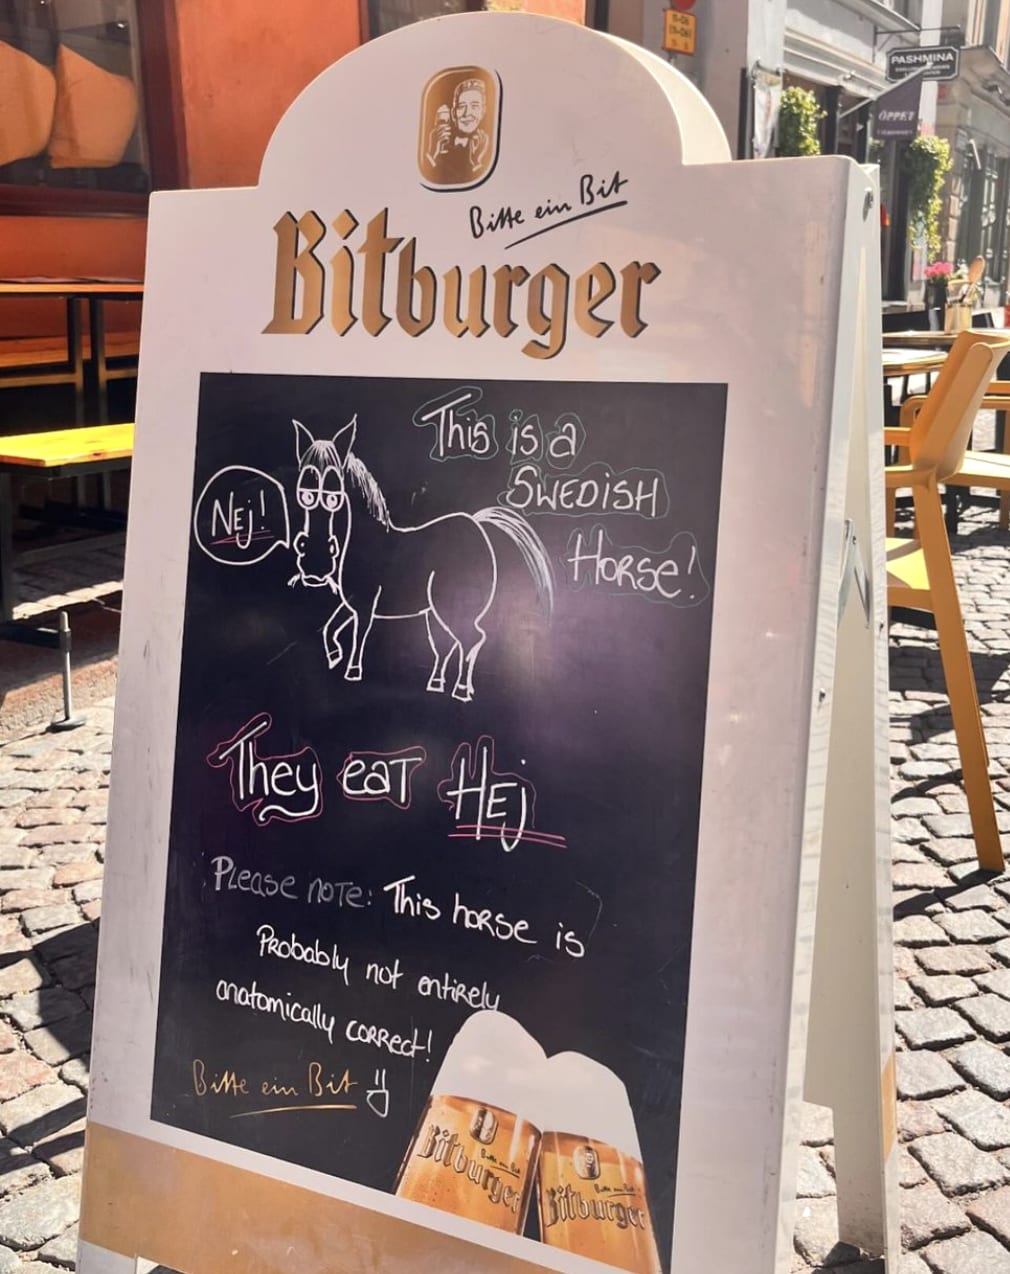 PASHMINA
ÖPPET
Bitte ein Bit
Bitburger
This is a
SWEDISH
HORSE!
NEJ!
They eat HEJ
PLEASE NOTE: This horse is
Probably not entirely
anatomically correct!
Bitte ein Bit
Bitburger
Bitburger